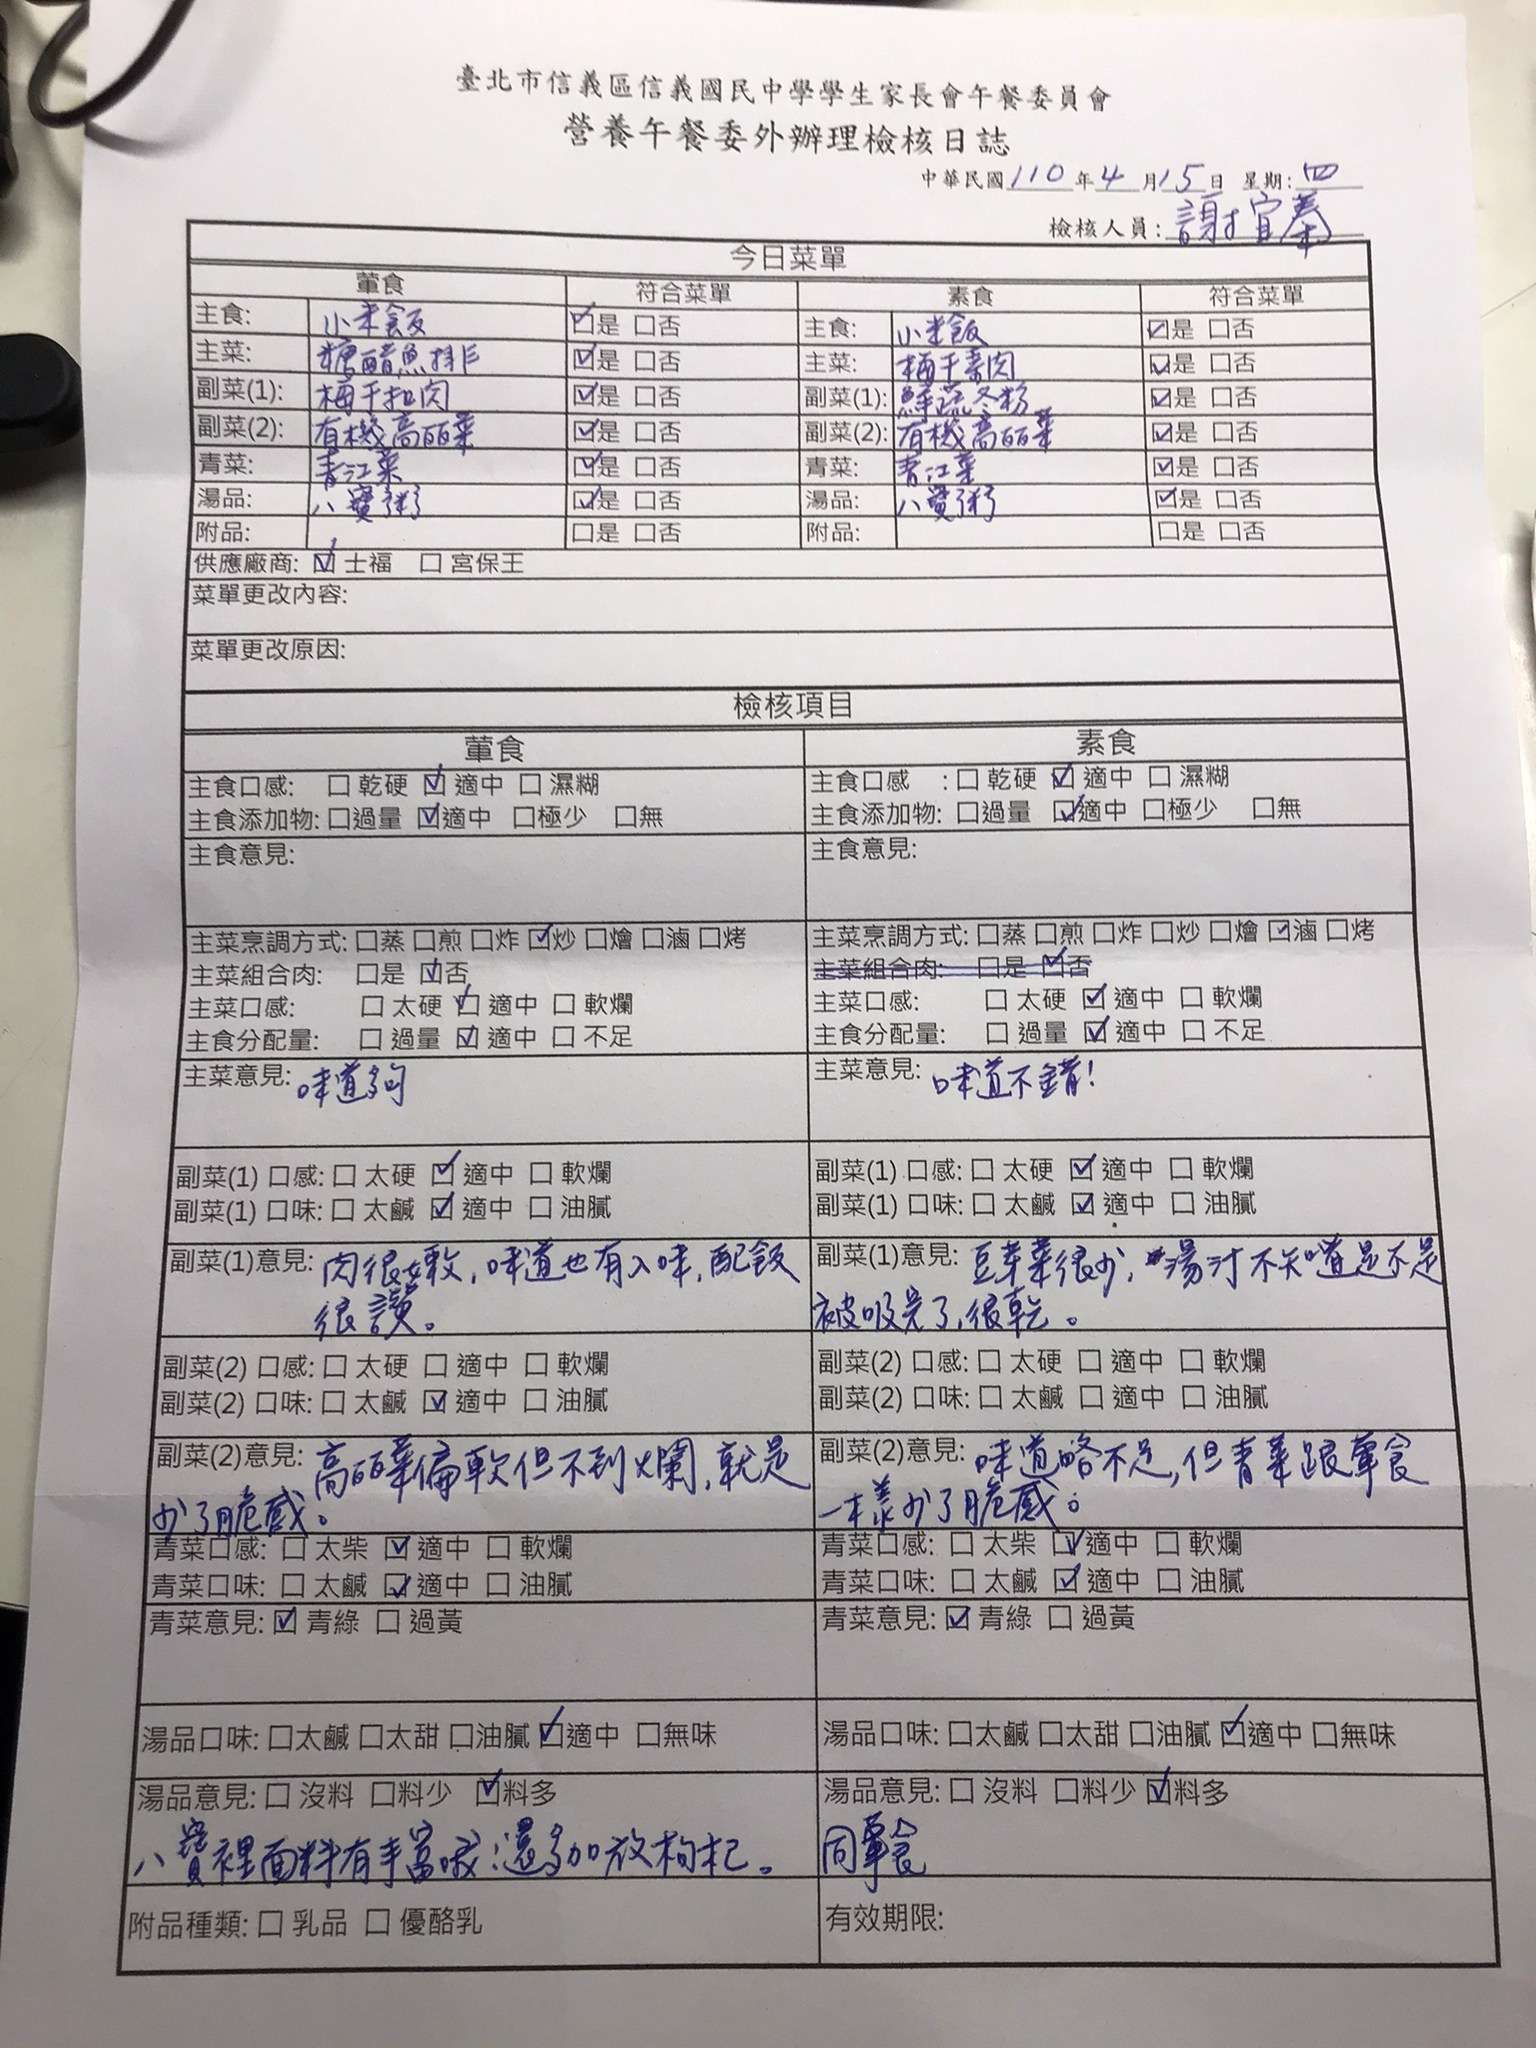 臺北市信義區信義國民中學學生家長會午餐委員會
營養午餐委外辦理檢核日誌
中華民國110年4月15日 星期:四
檢核人員:謝宜蓁
今日菜單
葷食 符合菜單 素食 符合菜單
主食: 小米飯 ☑是 □否 主食: 小米飯 ☑是 □否
主菜: 糖醋魚排 ☑是 □否 主菜: 梅干素肉 ☑是 □否
副菜(1): 梅干扣肉 ☑是 □否 副菜(1): 鮮蔬冬粉 ☑是 □否
副菜(2): 有機高麗菜 ☑是 □否 副菜(2): 有機高麗菜 ☑是 □否
青菜: 青江菜 ☑是 □否 青菜: 青江菜 ☑是 □否
湯品: 八寶粥 ☑是 □否 湯品: 八寶粥 ☑是 □否
附品: □是 □否 附品: □是 □否
供應廠商: ☑ 士福 □ 宮保王
菜單更改內容:
菜單更改原因:
檢核項目
葷食 素食
主食口感: □ 乾硬 ☑ 適中 □ 濕糊 主食口感 : □ 乾硬 ☑ 適中 □ 濕糊
主食添加物: □過量 ☑適中 □極少 □無 主食添加物: □過量 ☑適中 □極少 □無
主食意見: 主食意見:
主菜烹調方式: □蒸 □煎 □炸 ☑炒 □燴 □滷 □烤 主菜烹調方式: □蒸 □煎 □炸 □炒 □燴 ☑滷 □烤
主菜組合肉: □是 ☑否 主菜組合肉: □是 ☑否
主菜口感: □ 太硬 ☑ 適中 □ 軟爛 主菜口感: □ 太硬 ☑ 適中 □ 軟爛
主食分配量: □ 過量 ☑ 適中 □ 不足 主食分配量: □ 過量 ☑ 適中 □ 不足
主菜意見: 味道夠 主菜意見: 味道不錯!
副菜(1) 口感: □ 太硬 ☑ 適中 □ 軟爛 副菜(1) 口感: □ 太硬 ☑ 適中 □ 軟爛
副菜(1) 口味: □ 太鹹 ☑ 適中 □ 油膩 副菜(1) 口味: □ 太鹹 ☑ 適中 □ 油膩
副菜(1)意見: 肉很軟,味道也有入味,配飯 副菜(1)意見: 豆芽菜很少,湯汁不知道是不是
很讚。 被吸完了,很乾。
副菜(2) 口感: □ 太硬 □ 適中 □ 軟爛 副菜(2) 口感: □ 太硬 □ 適中 □ 軟爛
副菜(2) 口味: □ 太鹹 ☑ 適中 □ 油膩 副菜(2) 口味: □ 太鹹 □ 適中 □ 油膩
副菜(2)意見: 高麗菜偏軟但不到爛,就是 副菜(2)意見: 味道略不足,但青菜跟葷食
少了脆感。 一樣少了脆感。
青菜口感: □ 太柴 ☑ 適中 □ 軟爛 青菜口感: □ 太柴 ☑ 適中 □ 軟爛
青菜口味: □ 太鹹 ☑ 適中 □ 油膩 青菜口味: □ 太鹹 ☑ 適中 □ 油膩
青菜意見: ☑ 青綠 □ 過黃 青菜意見: ☑ 青綠 □ 過黃
湯品口味: □太鹹 □太甜 □油膩 ☑適中 □無味 湯品口味: □太鹹 □太甜 □油膩 ☑適中 □無味
湯品意見: □ 沒料 □料少 ☑料多 湯品意見: □ 沒料 □料少 ☑料多
八寶裡面料有豐富哦!還多加放枸杞。 同葷食
附品種類: □ 乳品 □ 優酪乳 有效期限: